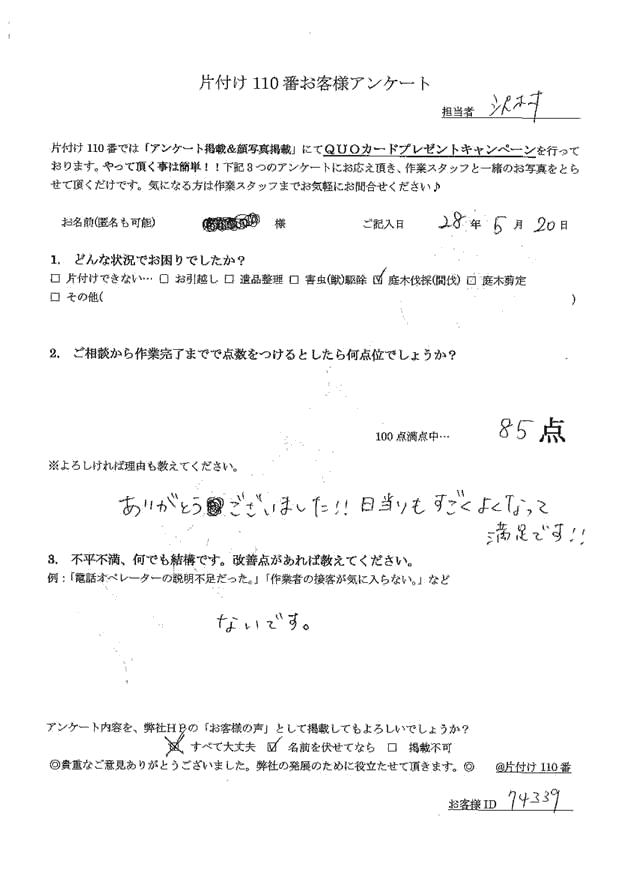 片付け110番お客様アンケート
担当者 沢村
片付け110番では「アンケート掲載&顔写真掲載」にてQUOカードプレゼントキャンペーンを行って
おります。やって頂く事は簡単!!下記3つのアンケートにお応え頂き、作業スタッフと一緒のお写真をとら
せて頂くだけです。気になる方は作業スタッフまでお気軽にお問合せください♪
お名前(匿名も可能) 様 ご記入日 28年5月20日
1. どんな状況でお困りでしたか?
□ 片付けできない… □ お引越し □ 遺品整理 □ 害虫(獣)駆除 ☑ 庭木伐採(間伐) □ 庭木剪定
□ その他( )
2. ご相談から作業完了までで点数をつけるとしたら何点位でしょうか?
100点満点中… 85点
※よろしければ理由も教えてください。
ありがとうございました!!日当りもすごくよくなって
満足です!!
3. 不平不満、何でも結構です。改善点があれば教えてください。
例:「電話オペレーターの説明不足だった。」「作業者の接客が気に入らない。」など
ないです。
アンケート内容を、弊社HPの「お客様の声」として掲載してもよろしいでしょうか?
☒ すべて大丈夫 ☑ 名前を伏せてなら □ 掲載不可
◎貴重なご意見ありがとうございました。弊社の発展のために役立たせて頂きます。◎ @片付け110番
お客様ID 74339